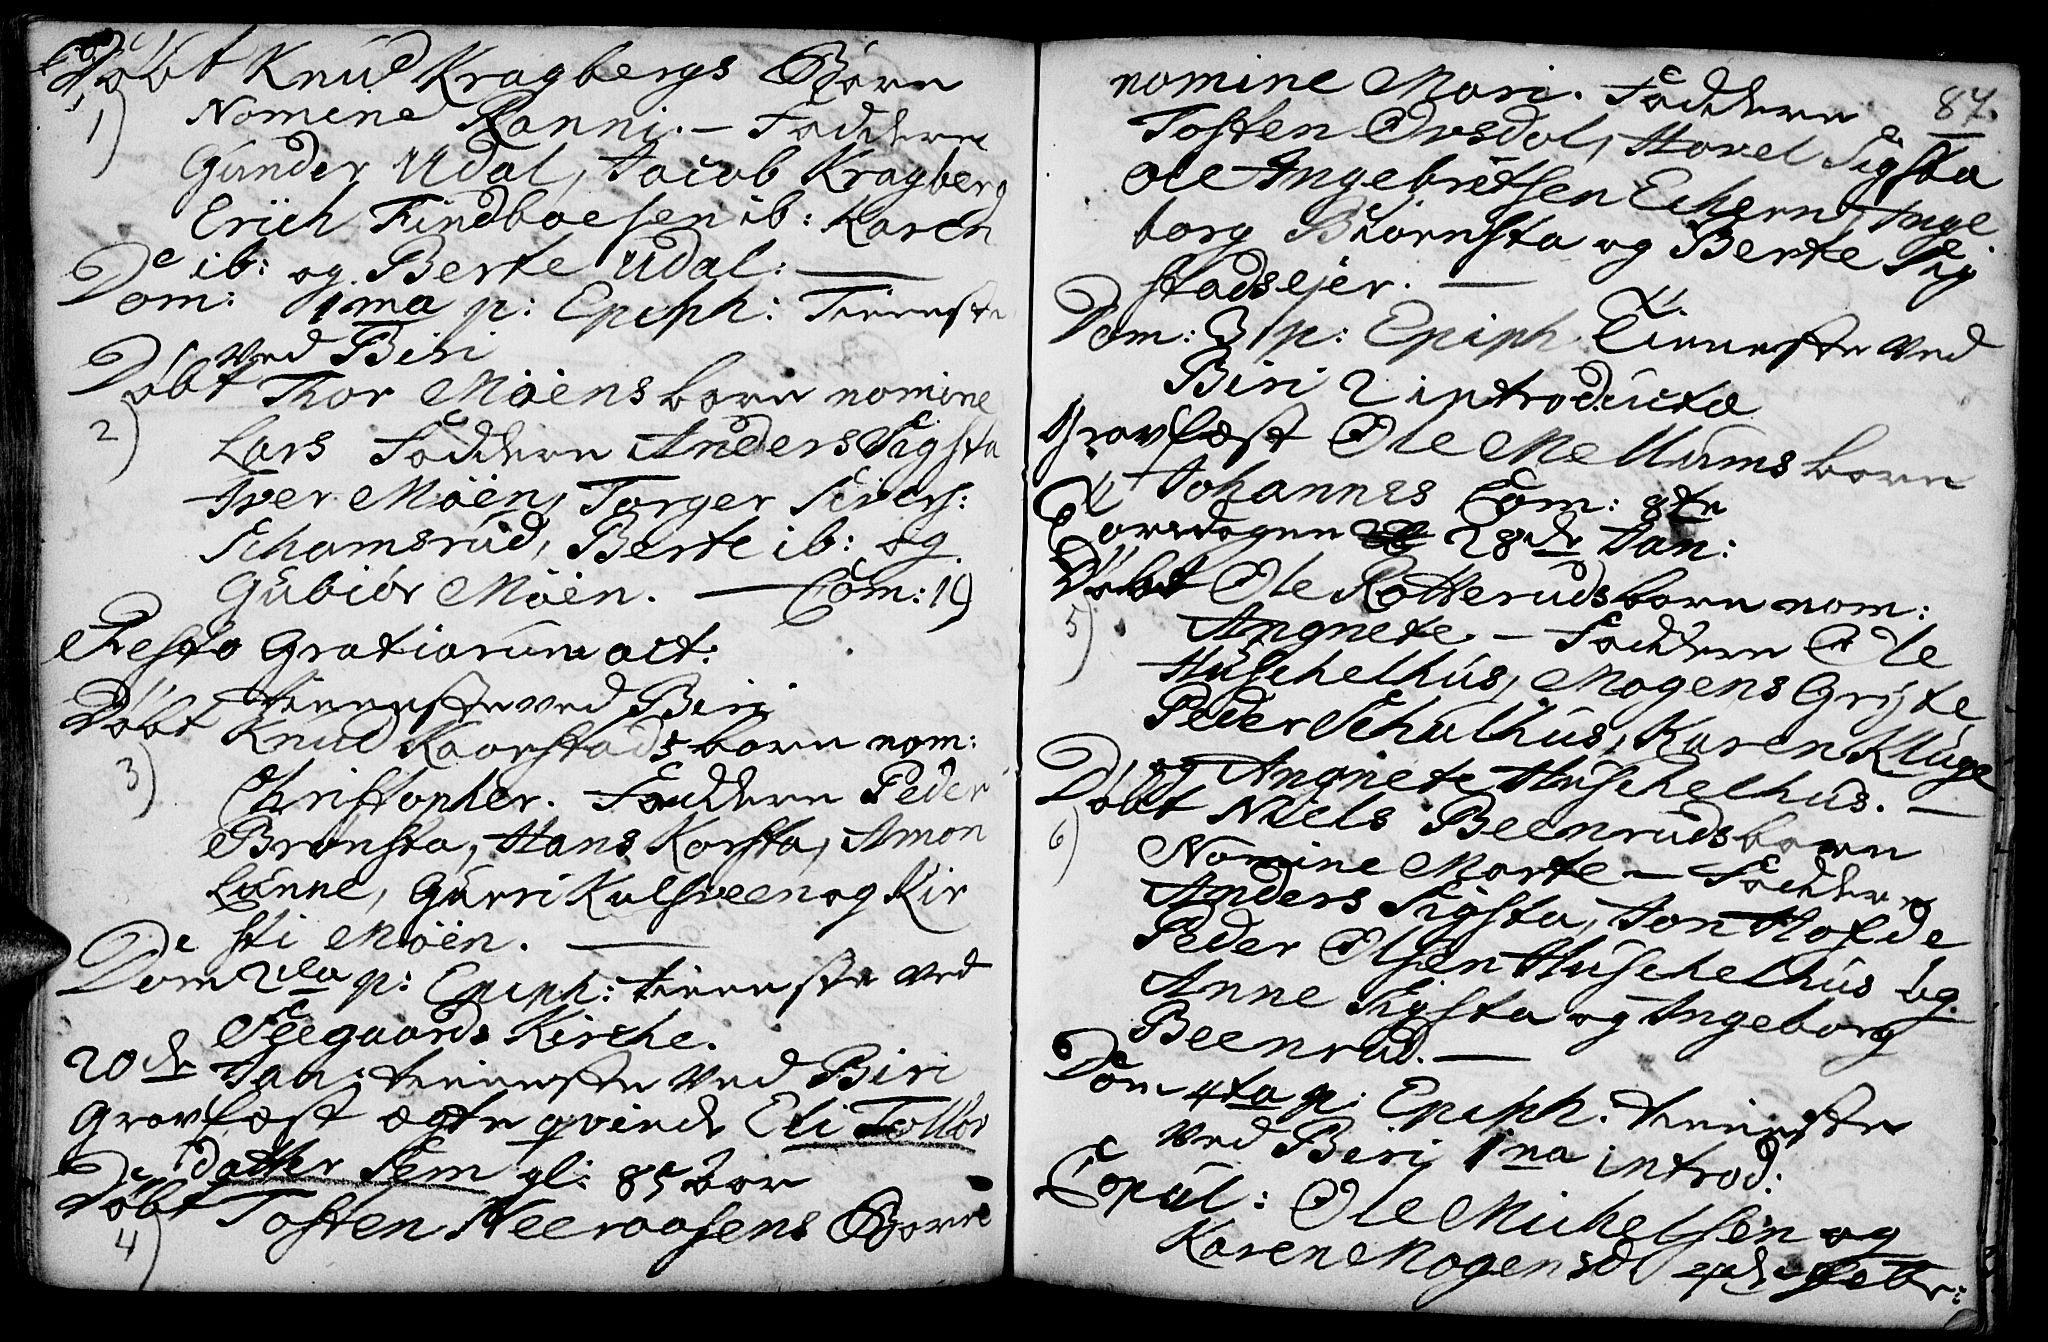 Døbt Knud Kragbergs Børn
1) Nomine Ranni. – Faddere
Gunder Udal, Jacob Kragberg
Erich Findboesen ib: Karen
ib: og Berte Udal: —
Dom: 1ma p: Epiph: Tieneste
ved Biri
Døbt Thor Möens barn nomine
2) Lars Faddere Anders Sigsta
Iver Möen, Torger Sivers:
Schamsrud, Berte ib: og
Gubiør Möen. — Com: 19
Festo Gratiarum act:
tieneste ved Biri
Døbt Knud Kaarstads barn nom:
3) Christopher. Faddere Peder
Brønsta, Hans Korsta, Amon
Lunne, Gurri Kulsveen og Kir
sti Möen. —
Dom 2da p: Epiph: tieneste ved
Seegaards Kirche.
20de Jan: tieneste ved Biri
Gravfæst ægte qvinde Eli Tollos
datter Sem gl: 85 aar
Døbt Tosten Neeraasens Barn
4)
87.
nomine Mari. Faddere
Tosten Orsdal, Havel Sigsta
Ole Ingebritsen Echern, Inge
borg Biørnsta og Berte Sig
stadsejer. —
Dom: 3 p: Epiph. Tieneste ved
Biri 2 introducta
Gravfæst Ole Mellums barn
Johannes Com: 8te
Torsdagen 28de Jan:
Døbt Ole Rotteruds barn nom:
5) Angnete – Faddere Ole
Huschelhus, Mogens Gryte
Peder Schulhus, Karen Kluge
og Angnete Huschelhus. —
Døbt Niels Beenruds barn
6) Nomine Marte – Faddere
Anders Sigsta, Jon Hofde
Peder Olsen Huschelhus og
Anne Sigsta og Ingeborg
Beenrud. —
Dom 4ta p: Epiph. tieneste
ved Biri, 1na introd:
Copul: Ole Michelsen og
Karen Mogensd Febr: